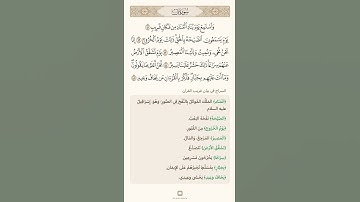 وَٱسْتَمِعْ يَوْمَ يُنَادِ ٱلْمُنَادِ مِن مَّكَانٍ قَرِيبٍ ٤١
يَوْمَ يَسْمَعُونَ ٱلصَّيْحَةَ بِٱلْحَقِّ ذَٰلِكَ يَوْمُ ٱلْخُرُوجِ ٤٢ إِنَّا
نَحْنُ نُحْيِۦ وَنُمِيتُ وَإِلَيْنَا ٱلْمَصِيرُ ٤٣ يَوْمَ تَشَقَّقُ ٱلْأَرْضُ
عَنْهُمْ سِرَاعًا ذَٰلِكَ حَشْرٌ عَلَيْنَا يَسِيرٌ ٤٤ نَّحْنُ أَعْلَمُ بِمَا يَقُولُونَ
وَمَآ أَنتَ عَلَيْهِم بِجَبَّارٍ فَذَكِّرْ بِٱلْقُرْءَانِ مَن يَخَافُ وَعِيدِ ٤٥
السراج في بيان غريب القرآن
﴿الْمُنَادِ﴾ المَلَكُ المُوَكَّلُ بِالنَّفْخِ فِي الصُّورِ؛ وَهُوَ إِسْرَافِيلُ
عليه السلام.
﴿الصَّيْحَةَ﴾ نَفْخَةَ البَعْثِ.
﴿يَوْمُ الْخُرُوجِ﴾ مِنَ القُبُورِ.
﴿الْمَصِيرُ﴾ المَرْجِعُ، وَالمَآلُ.
﴿تَشَقَّقُ الْأَرْضُ﴾ تَتَصَدَّعُ.
﴿سِرَاعًا﴾ يَخْرُجُونَ مُسْرِعِينَ.
﴿بِجَبَّارٍ﴾ بِمُسَلَّطٍ تُجْبِرُهُمْ عَلَى الإِيمَانِ.
﴿يَخَافُ وَعِيدِ﴾ يَخْشَى وَعِيدِي.